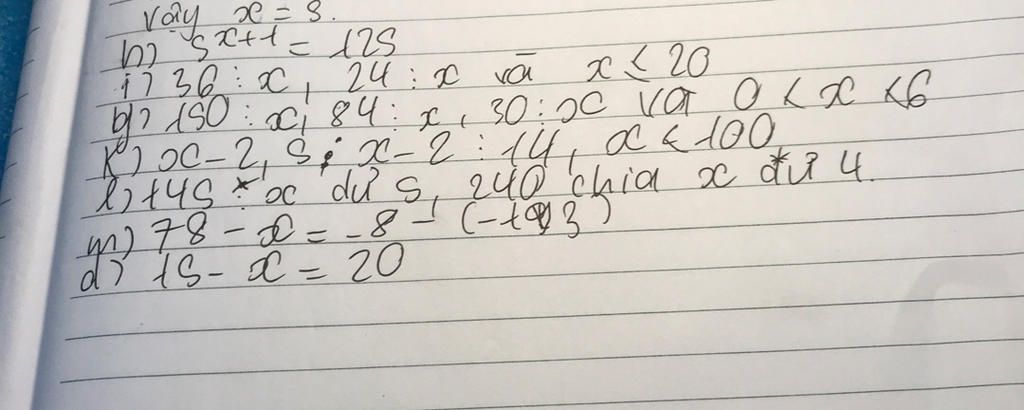 vậy x = 5.
h) 5^{x+1} = 125
i) 36 ⋮ x, 24 ⋮ x và x ≤ 20
y) 150 ⋮ x, 84 ⋮ x, 30 ⋮ x và 0 < x < 6
k) x - 2, 5 ; x - 2 ⋮ 14, x < 100
l) 145 : x dư 5, 240 chia x dư 4.
m) 78 - x = -8 - (
d) 15 - x = 20